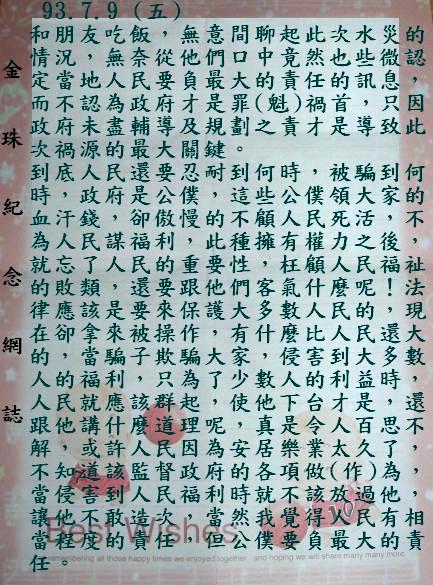 93.7.9 (五)
金珠紀念網誌
和朋友,吃飯,無意間聊起此次水災的
情況,無奈從他們口中竟然也些微認
定當地人民要負最大的責任的訊息,
而不認為政府才是罪(魁)禍首,只因此
政府未盡輔導及規劃之責才是導致
次禍源的最大關鍵。
到底人民還要忍耐到何時,被騙到何
時,政府是公僕,這些公僕領大家的
血汗錢,卻傲慢的不顧人民死活,不
為人民謀福利,此種擁有權力之後,
就忘了人民的重要性,枉顧人民福祉
的敗類,還要跟他們客氣什麼呢!法
律應該是要來保護大多數人民的,現
在卻拿來被操作,有什麼比人民還大
的,當騙子欺騙大家,侵害到大多數
人的福利,只為了少數人的利益時,
人民就應該群起使他下台才是,還不
跟他講什麼道理呢,真是令人百思不
解,或許人民因為安居樂業太久了,
不知道該監督政府的各項做(作)為,
當侵害到人民福利時就不該放過他,
讓他不敢造次,當然我覺得人民有相
當程度的責任,但公僕要負最大的責
任。
Best Wishes
remembering all those happy times we enjoyed together and hoping we will share many many more